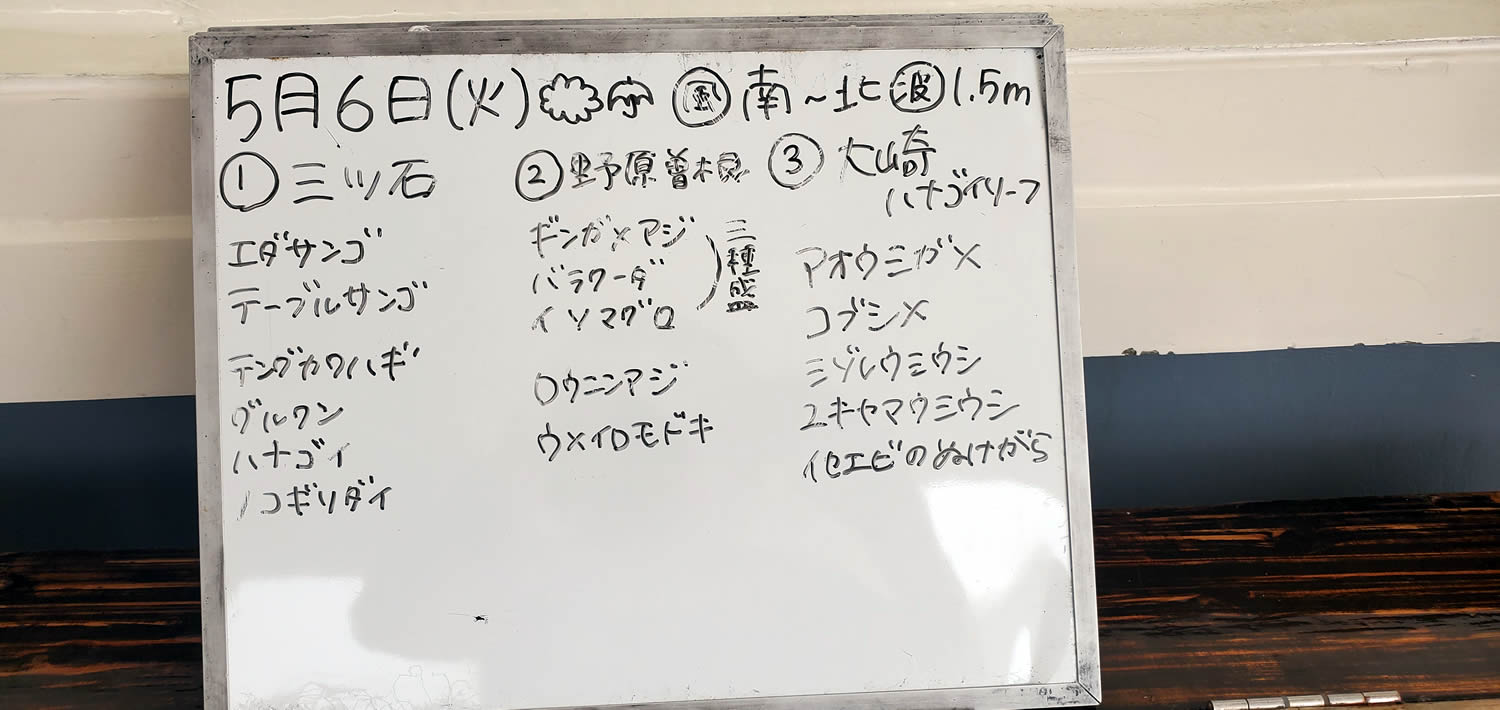 5月6日(火) 風 南~北 波 1.5m
① 三ツ石
エダサンゴ
テーブルサンゴ
テングカワハギ
グルクン
ハナゴイ
ノコギリダイ
② 野原曽根
ギンガメアジ
バラクーダ
イソマグロ
三種盛
ロウニンアジ
ウメイロモドキ
③ 大崎
ハナゴイリーフ
アオウミガメ
コブシメ
ミゾレウミウシ
ユキヤマウミウシ
イセエビのぬけがら